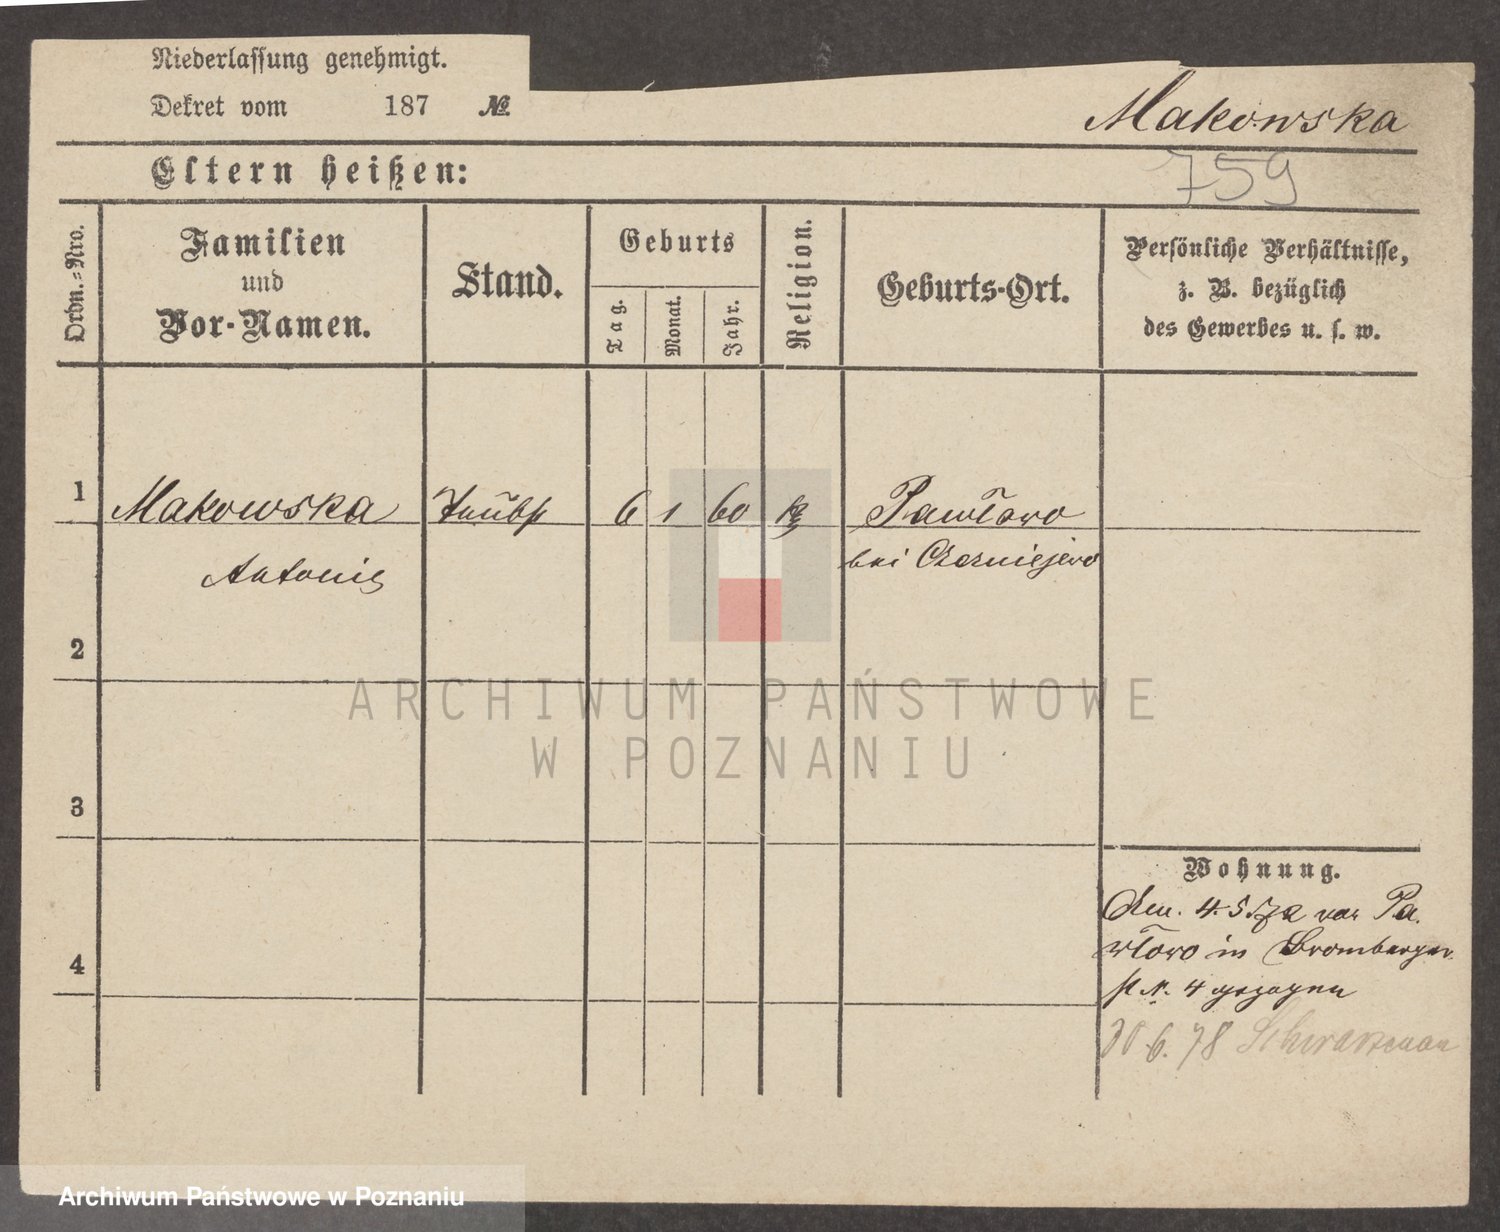 Niederlassung genehmigt.
Dekret vom 187 №
Makowska
Eltern heißen:
759
Ordn.-Nro.
Familien
und
Vor-Namen.
Stand.
Geburts
Tag.
Monat.
Jahr.
Religion.
Geburts-Ort.
Persönliche Verhältnisse,
z. B. bezüglich
des Gewerbes u. s. w.
1 Makowska 6 1 60 k Pawłowo
Antonie bei Czerniejewo
2
ARCHIWUM PAŃSTWOWE
W POZNANIU
3
Wohnung.
4. 5. 78 von Pa
włowo in Bromberger
4
st N. 4 gezogen
30 6. 78
Archiwum Państwowe w Poznaniu